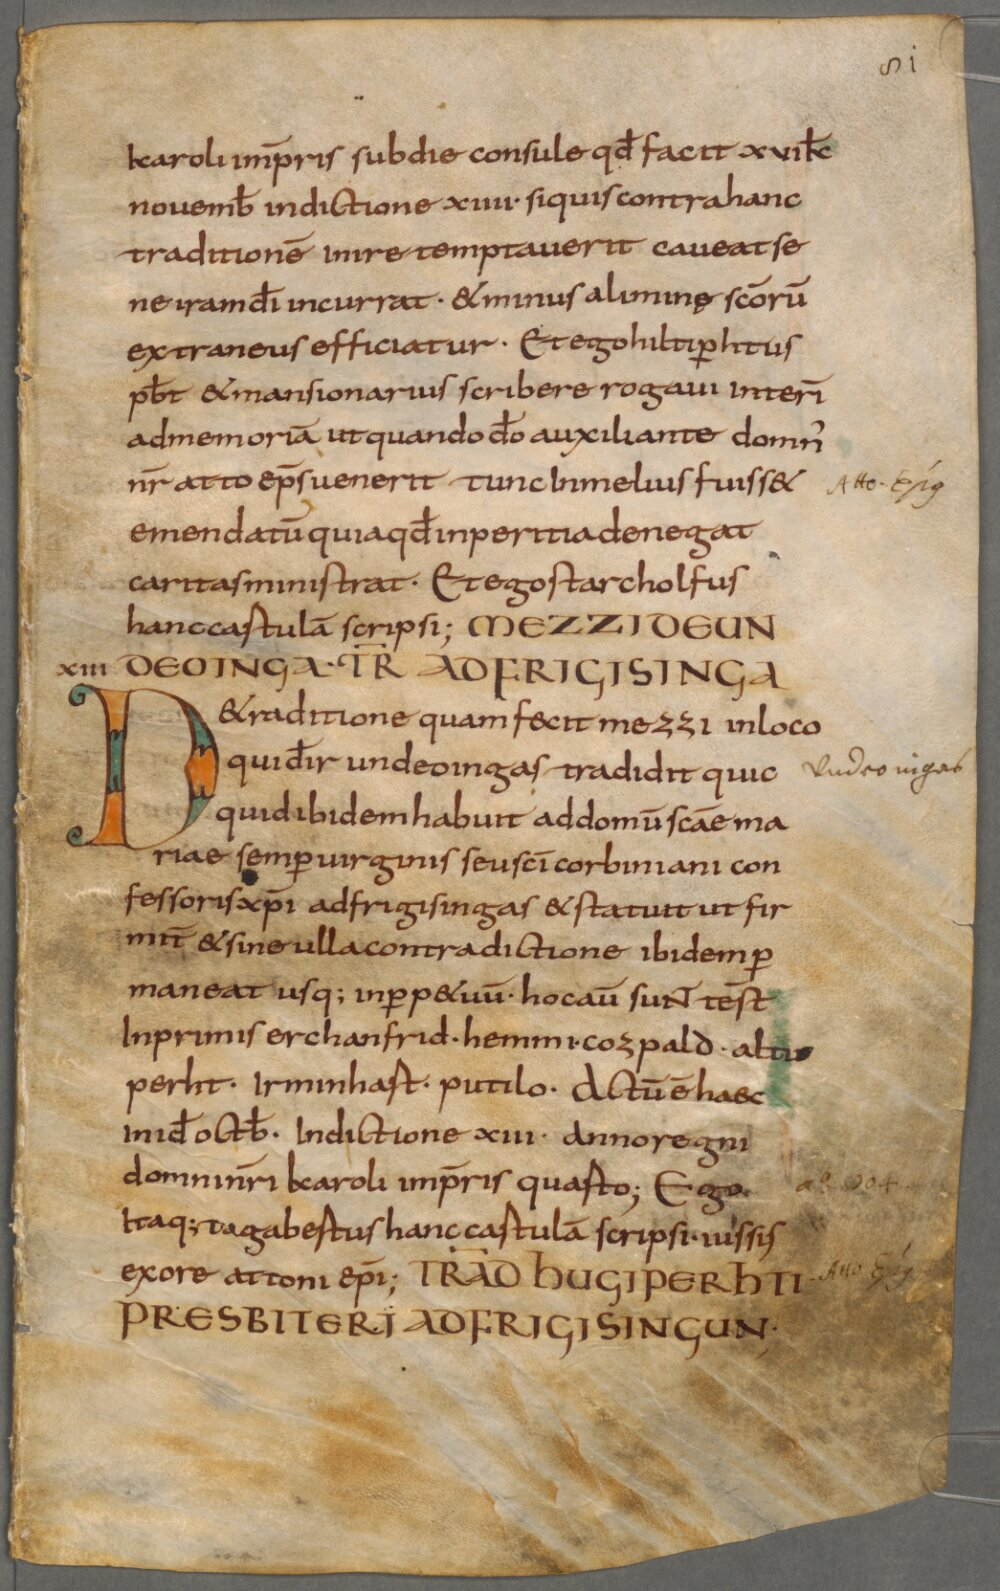 51
karoli imp̄ris sub die consule qđ facit xvi kł
nouemƀ indictione xiiii· siquis contra hanc
traditionē inire temptauerit caueat se
ne iram dī incurrat· & minus alimine scōrū
extraneus efficiatur· Et ego hiltiꝑhtus
pƀt & mansionarius scribere rogaui interī
ad memoriā ut quando dō auxiliante domn̄
nr̄ atto ep̄s uenerit tunc In melius fuiss&
emendatū quia qđ inperitia denegat
caritas ministrat· Et ego starcholfus
hanc castulā scripsi; MEZZI DE UN
xiii DEOINGA· TR̄ AD FRIGISINGA
D& raditione quam fecit mezzi in loco
qui dr̄ undeoingas tradidit quic
undeoingas
quid ibidem habuit ad domū scāe ma
riae semꝑ uirginis seu scī corbiniani con
fessoris xp̄i ad frigisingas & statuit ut fir
mit̄ & sine ulla contradictione ibidem ꝑ
maneat usq; inꝑp&uū· hoc aū sun̄t tes̄t
Inprimis erchanfrid· hemmi· cozpald· alti
perht· Irminhast· putilo· Actū ē haec
in id̄ octƀ· Indictione xiii· Anno regni
domni nr̄i karoli imp̄ris quarto; Ego
itaq; tagabestus hanc castulā scripsi· iussis
ex ore attoni ep̄i; TRAD̄ HUGIPERHTI
PRESBITERI AD FRIGISINGUN·